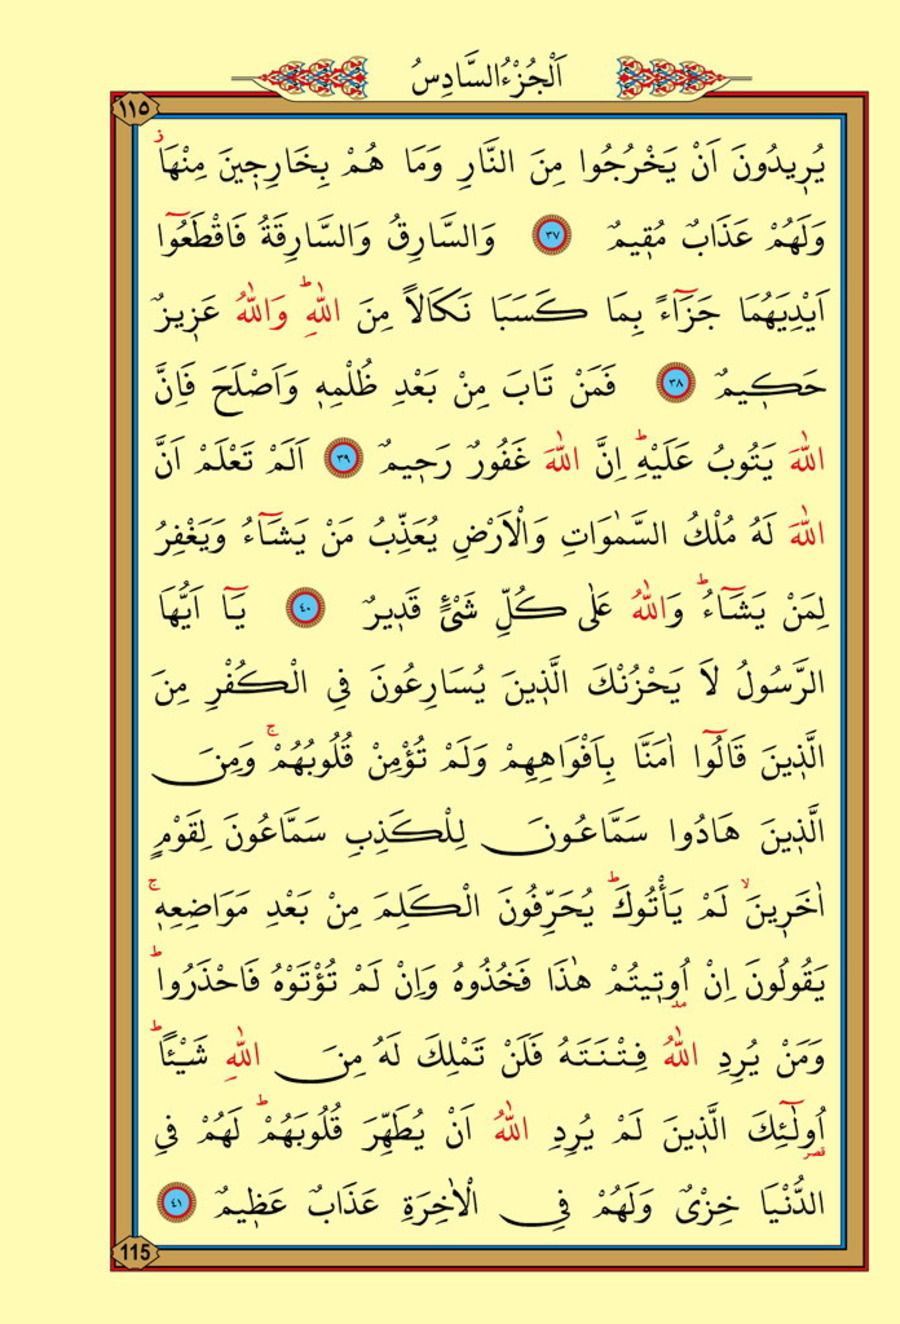 اَلْجُزْءُ السَّادِسُ
١١٥
يُرٖيدُونَ اَنْ يَخْرُجُوا مِنَ النَّارِ وَمَا هُمْ بِخَارِجٖينَ مِنْهَاۘ
وَلَهُمْ عَذَابٌ مُقٖيمٌ ﴿٣٧﴾ وَالسَّارِقُ وَالسَّارِقَةُ فَاقْطَعُٓوا
اَيْدِيَهُمَا جَزَٓاءً بِمَا كَسَبَا نَكَالاً مِنَ اللّٰهِؕ وَاللّٰهُ عَزٖيزٌ
حَكٖيمٌ ﴿٣٨﴾ فَمَنْ تَابَ مِنْ بَعْدِ ظُلْمِهٖ وَاَصْلَحَ فَاِنَّ
اللّٰهَ يَتُوبُ عَلَيْهِؕ اِنَّ اللّٰهَ غَفُورٌ رَحٖيمٌ ﴿٣٩﴾ اَلَمْ تَعْلَمْ اَنَّ
اللّٰهَ لَهُ مُلْكُ السَّمٰوَاتِ وَالْاَرْضِ يُعَذِّبُ مَنْ يَشَٓاءُ وَيَغْفِرُ
لِمَنْ يَشَٓاءُؕ وَاللّٰهُ عَلٰى كُلِّ شَیْءٍ قَدٖيرٌ ﴿٤٠﴾ يَٓا اَيُّهَا
الرَّسُولُ لاَ يَحْزُنْكَ الَّذٖينَ يُسَارِعُونَ فِي الْكُفْرِ مِنَ
الَّذٖينَ قَالُٓوا اٰمَنَّا بِاَفْوَاهِهِمْ وَلَمْ تُؤْمِنْ قُلُوبُهُمْۚ وَمِنَ
الَّذٖينَ هَادُوا سَمَّاعُونَ لِلْكَذِبِ سَمَّاعُونَ لِقَوْمٍ
اٰخَرٖينَۙ لَمْ يَأْتُوكَؕ يُحَرِّفُونَ الْكَلِمَ مِنْ بَعْدِ مَوَاضِعِهٖۚ
يَقُولُونَ اِنْ اُوتٖيتُمْ هٰذَا فَخُذُوهُ وَاِنْ لَمْ تُؤْتَوْهُ فَاحْذَرُواؕ
وَمَنْ يُرِدِ اللّٰهُ فِتْنَتَهُ فَلَنْ تَمْلِكَ لَهُ مِنَ اللّٰهِ شَيْئاًؕ
اُولٰٓئِكَ الَّذٖينَ لَمْ يُرِدِ اللّٰهُ اَنْ يُطَهِّرَ قُلُوبَهُمْؕ لَهُمْ فِي
الدُّنْيَا خِزْیٌ وَلَهُمْ فِي الْاٰخِرَةِ عَذَابٌ عَظٖيمٌ ﴿٤١﴾
115